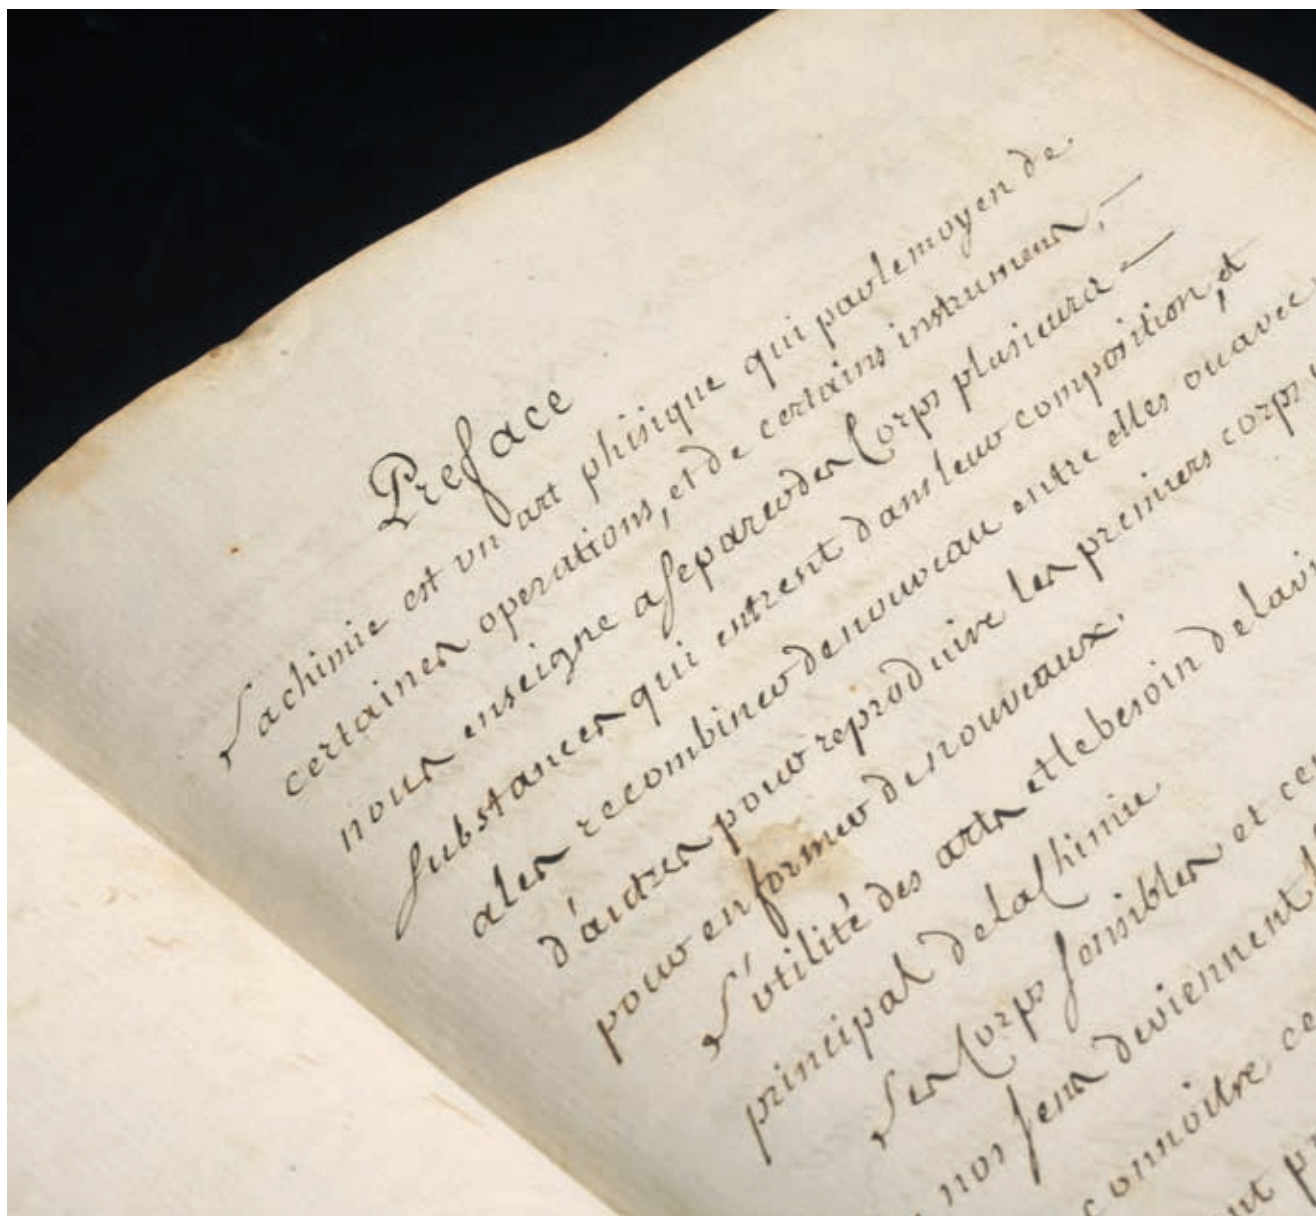 Preface
La chimie est vn art phisique qui par le moyen de
certaines operations, et de certains instrumens,
nous enseigne a separer des Corps plusieurs
substances qui entrent dans leur composition, et
a les recombiner de nouveau entre elles ou avec
d'autres pour reproduire les premiers corps
pour en former de nouveaux.
L'vtilité des arts et le besoin de la vi
principal de la Chimie
Les Corps sensibles et ce
nos sens deviennent
connoitre ce